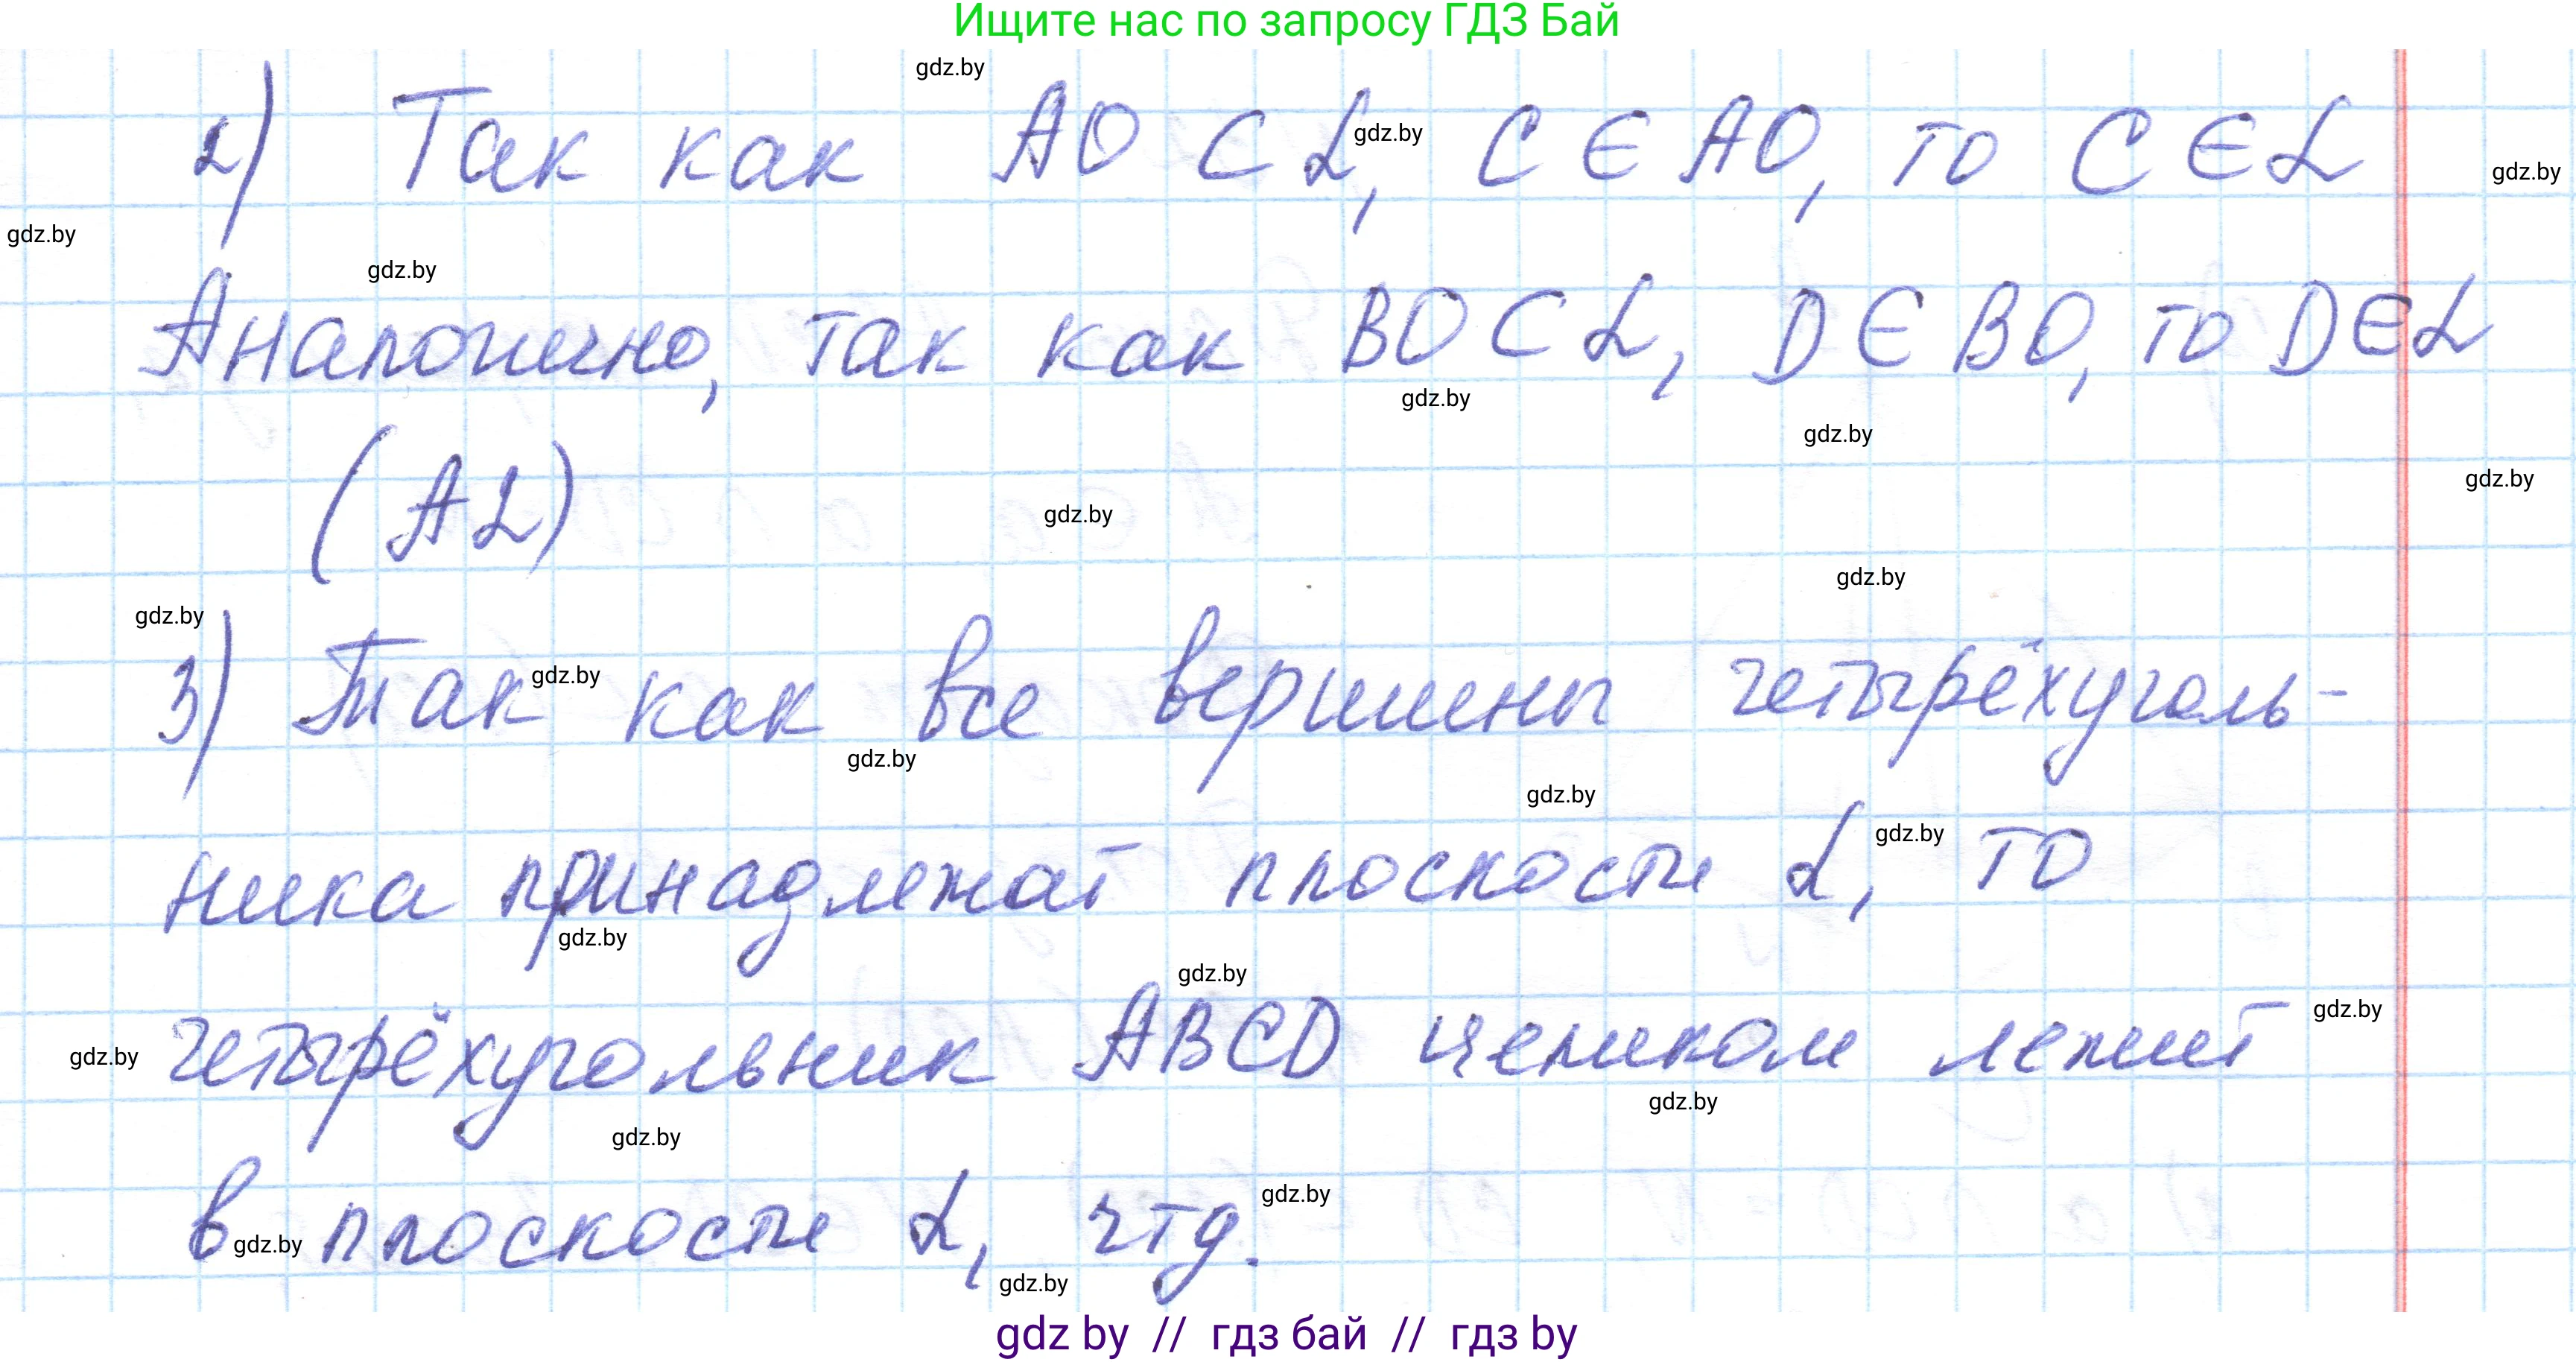 Ищите нас по запросу ГДЗ Бай
gdz.by
2) Так как AO ⊂ α, C ∈ AO, то C ∈ α
gdz.by
gdz.by
gdz.by
gdz.by
Аналогично, так как BO ⊂ α, D ∈ BO, то D ∈ α
gdz.by
gdz.by
(А2)
gdz.by
gdz.by
gdz.by
gdz.by
3) Так как все вершины четырёхуголь-
gdz.by
gdz.by
gdz.by
ника принадлежат плоскости α, то
gdz.by
gdz.by
gdz.by
четырёхугольник ABCD целиком лежит
gdz.by
gdz.by
gdz.by
gdz.by
в плоскости α, чтд.
gdz.by
gdz.by
gdz.by
gdz by // гдз бай // гдз by